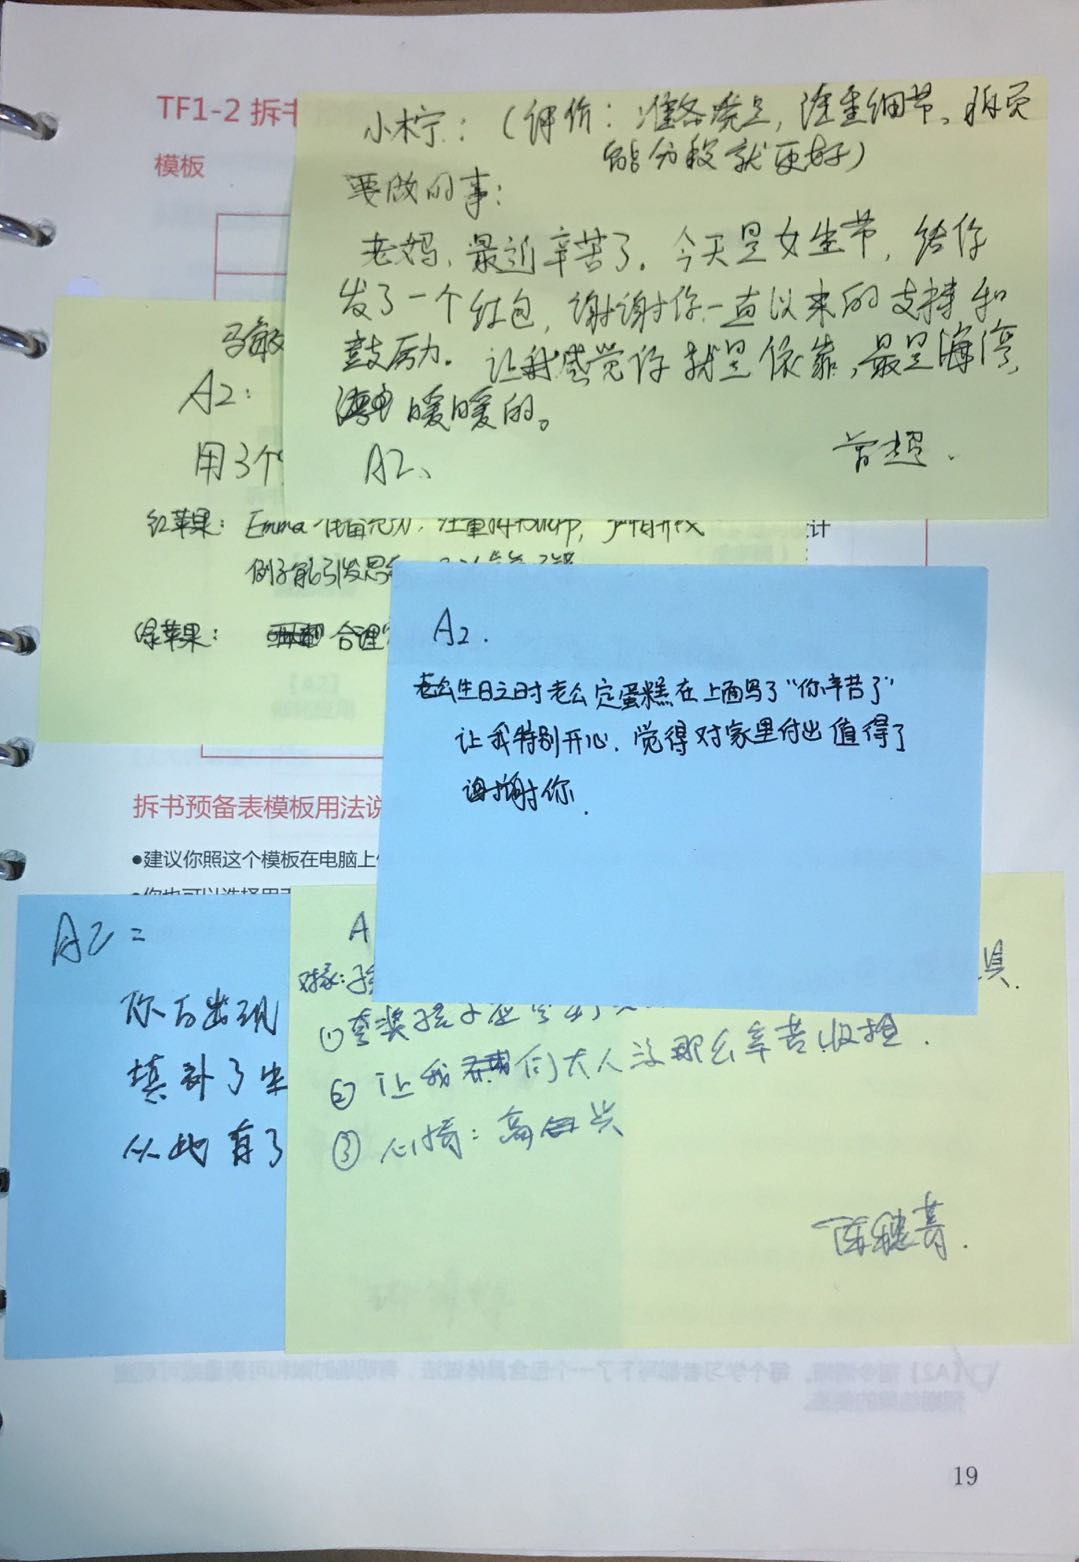 TF1-2 拆书
模板
小柠：（评价：准备亮点，注重细节、拆页
能分段就更好）
要做的事：
老妈，最近辛苦了。今天是女生节，给你
发了一个红包，谢谢你一直以来的支持和
鼓励。让我感觉你就是依靠，最是海湾，
暖暖的。
A2、
曾超.
马敏
A2:
用3个
红苹果： Emma
计
例子能引发思
绿苹果： 合理
A2.
老公生日之时老公定蛋糕在上面写了“你辛苦了”
让我特别开心，觉得对家里付出值得了
谢谢你.
拆书预备表模板用法说
●建议你照这个模板在电脑上
A2=
你的出现
填补了
从此有了
A
对象：孩
具.
①夸奖孩子
②让我们大人没那么辛苦收捡.
③心情：高兴
陈穗菁.
19